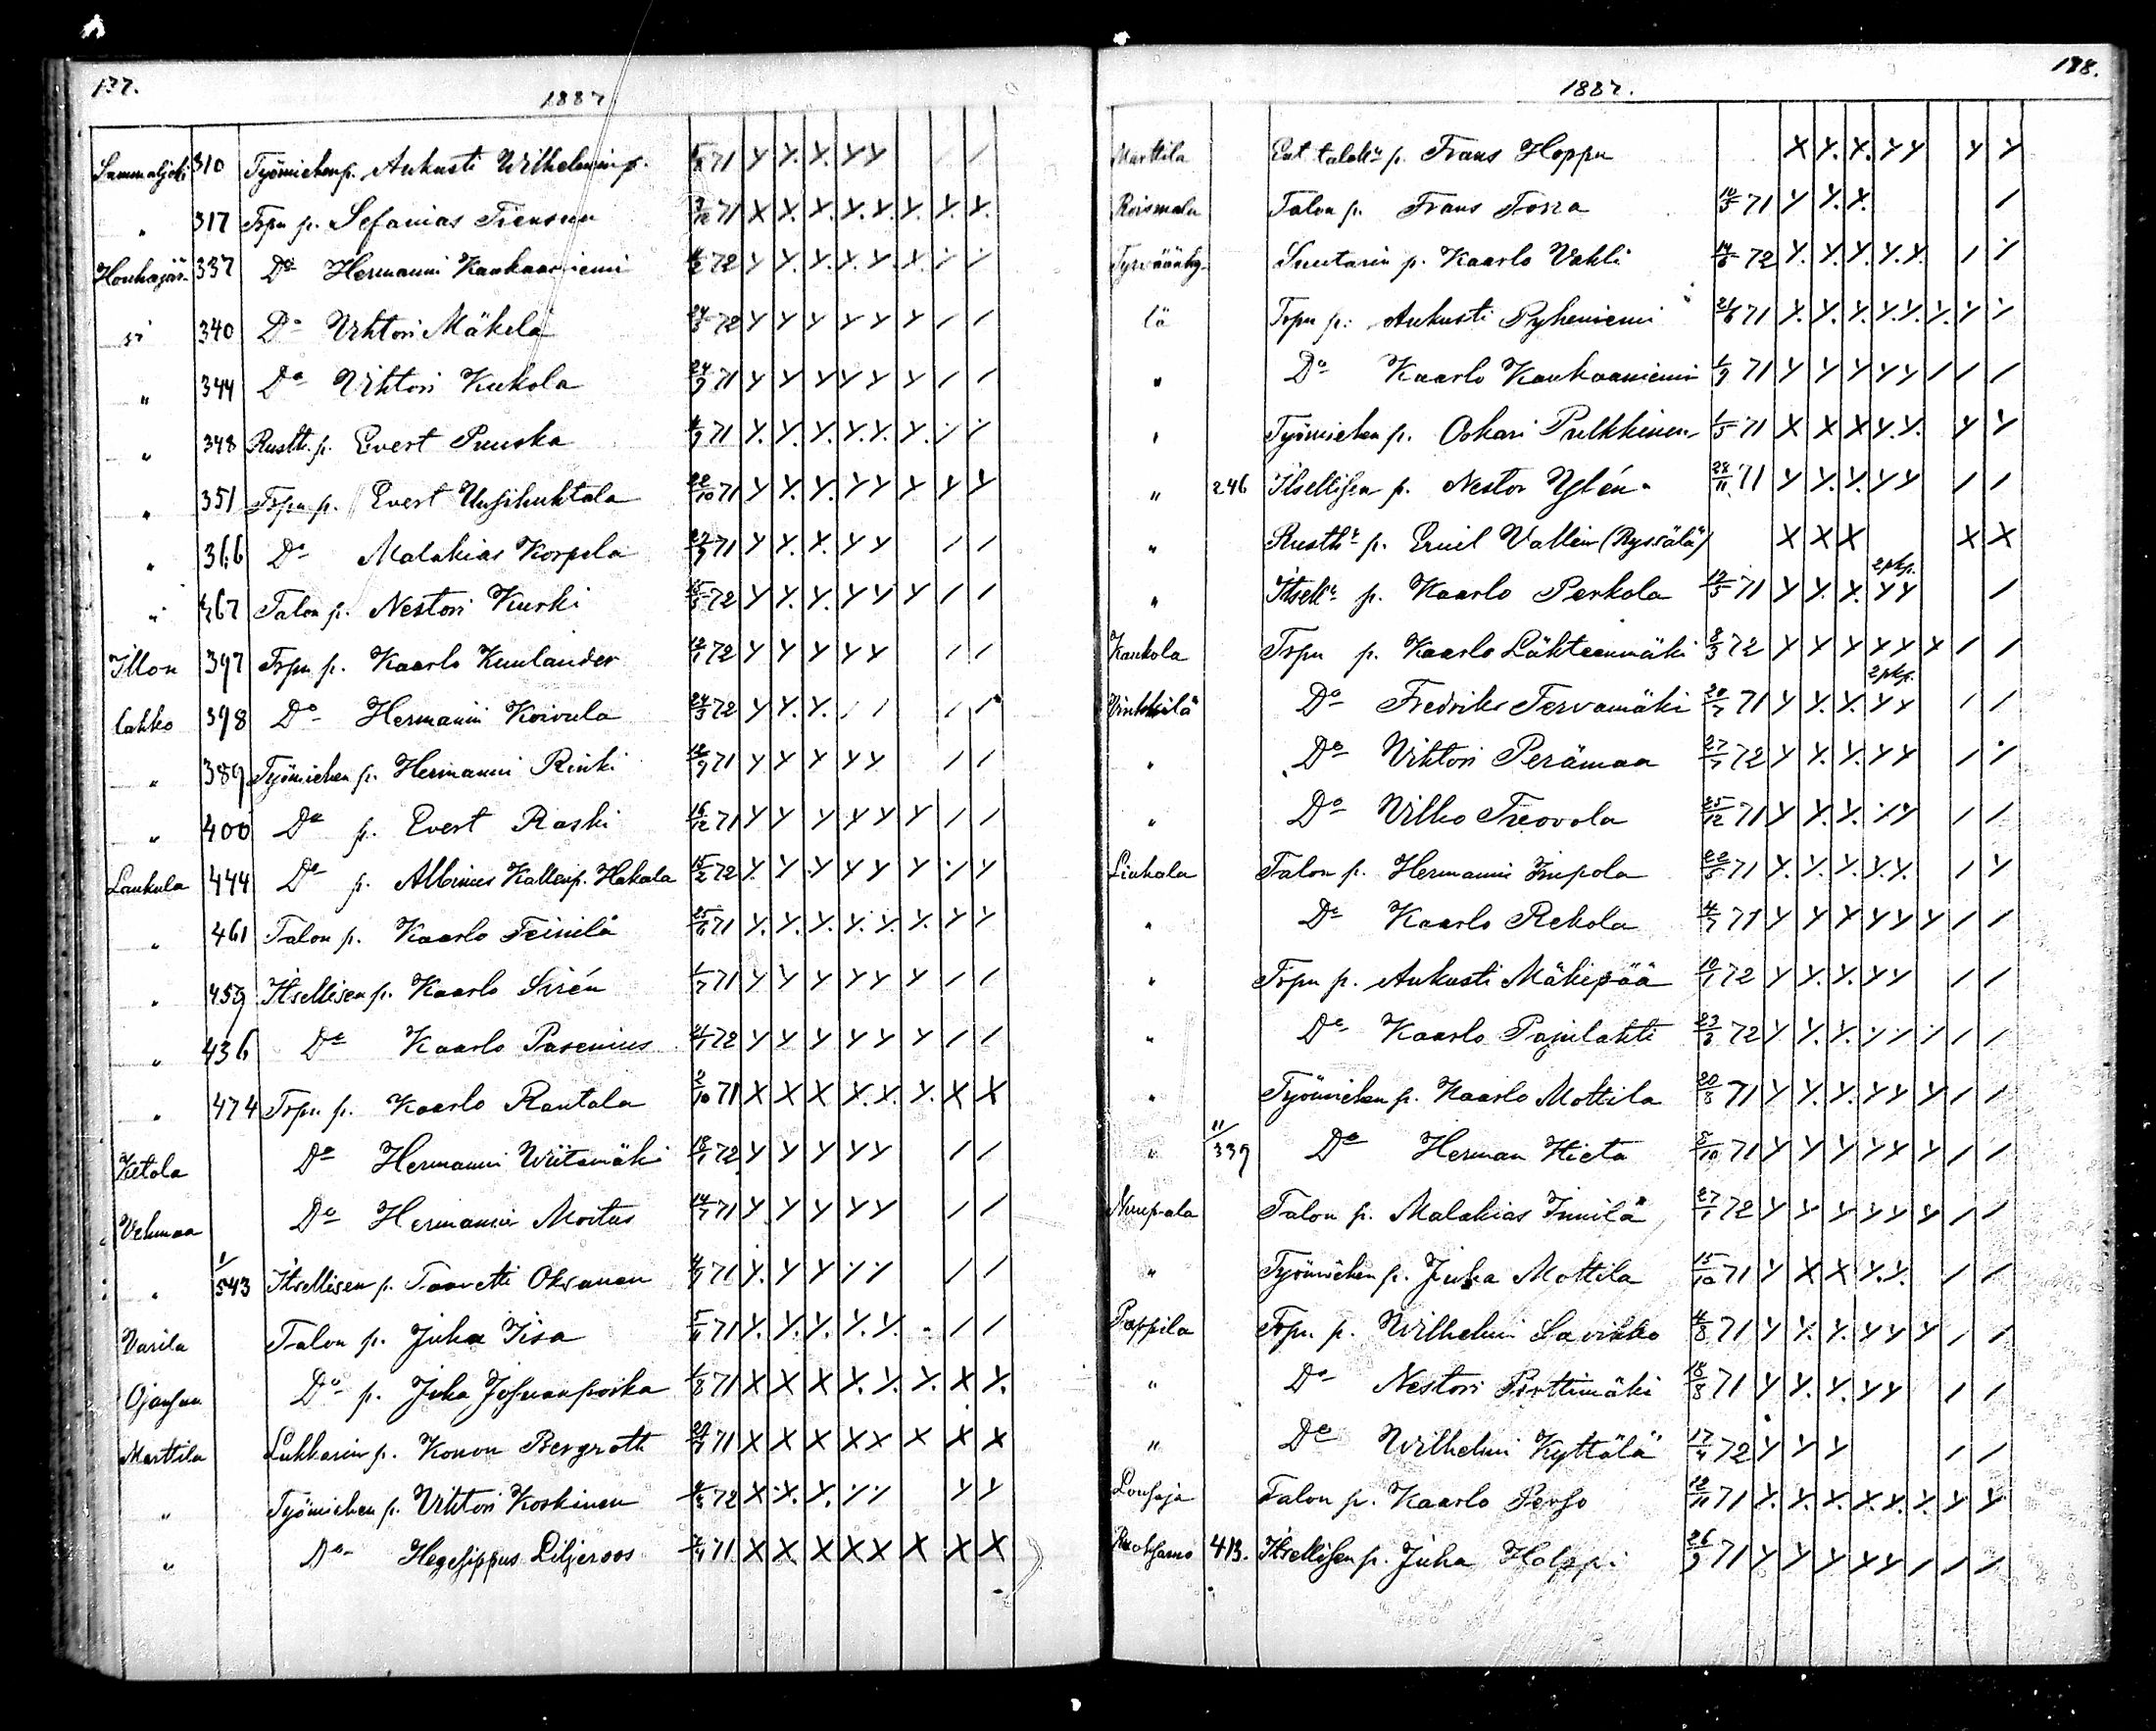 177.
1887
Sammaljoki 310 Työmiehen p. Aukusti Wilhelmin p. 71 Y Y. Y. Y Y / /
" 317 Trpn p. Sefanias Tiensuu 3/12 71 X Y. Y. Y. Y. Y. Y. Y.
Houhajär- 337 Do Hermanni Kaukaaniemi 72 Y Y. Y. Y. Y. Y. / /
vi 340 Do Vihtori Mäkelä 24/3 72 Y Y Y Y Y Y / /
" 344 Do Vihtori Kukola 24/9 71 Y Y Y Y Y Y / /
" 348 Rusth. p. Evert Puuska 4/9 71 Y. Y. Y. Y. Y. Y. / /
" 351 Trpn p. Evert Uusihuhtala 22/10 71 Y Y. Y. Y Y Y Y Y
" 366 Do Malakias Korpela 27/9 71 Y Y. Y. Y Y / /
" 367 Talon p. Nestori Kurki 15/5 72 Y Y. Y. Y Y Y / /
Illon 397 Trpn p. Kaarlo Kuulander 12/1 72 Y Y Y Y Y / /
lahko 398 Do Hermanni Koivula 24/3 72 Y Y. Y. / / / /
" 389 Työmiehen p. Hermanni Rinki 12/9 71 Y Y Y Y Y / /
" 400 Do p. Evert Raski 16/12 71 Y Y Y Y Y Y / /
Laukula 444 Do p. Albinus Kallenp. Hakala 15/2 72 Y. Y. Y Y Y Y / Y
" 461 Talon p. Kaarlo Teinilä 25/6 71 Y. Y. Y. Y. Y. Y. Y Y
" 459 Itsellisen p. Kaarlo Sirén 1/7 71 Y Y Y Y Y Y / /
" 436 Do Kaarlo Pasenius 21/1 72 Y Y Y Y Y Y / /
" 474 Trpn p. Kaarlo Rantala 2/10 71 X X X X. X. Y. X X
Ketola Do Hermanni Wiitamäki 18/1 72 Y Y Y Y Y / /
Vehmaa Do Hermanni Moitus 14/7 71 Y Y Y Y Y / /
" 1/543 Itsellisen p. Taavetti Oksanen 4/9 71 Y. Y Y / / / /
Varila Talon p. Juha Iisa 5/11 71 Y. Y. Y. Y. Y. / /
Ojansuu Do p. Juha Josuanpoika 1/8 71 X X X Y. Y. Y. X Y.
Marttila Lukkarin p. Konon Bergroth 20/7 71 X X X X X X X X
" Työmiehen p. Vihtori Koskinen 72 X X. Y. / / Y Y
" Do Hegesippus Liljeroos 71 X X X X X X X X
178.
1887.
Marttila Ent. talok:n p. Frans Hoppu X Y. X. Y Y Y Y
Roismala Talon p. Frans Torra 10/3 71 Y Y. Y. /
Tyrväänky- Suutarin p. Kaarlo Vahli 14/6 72 Y. Y. Y. Y. Y. / /
lä Trpn p. Aukusti Pyheniemi 26/6 71 Y. Y. Y. Y. Y. Y. Y /
" Do Kaarlo Kaukaaniemi 1/9 71 Y Y Y Y Y / / /
" Työmiehen p. Oskari Pulkkinen 1/5 71 X X X Y. Y. Y Y
" 246 Itsellisen p. Nestor Ylén 28/11 71 Y Y. Y. Y Y / /
" Rusth:n p. Emil Vallin (Ryssälä) X X X X X
2pkp.
" Itsell:n p. Kaarlo Perkola 12/5 71 Y Y. X. Y Y /
Kaukola Trpn p. Kaarlo Lähteenmäki 8/3 72 Y Y Y Y Y Y / /
2pkp.
Vinkkilä Do Fredrik Tervamäki 20/7 71 Y Y. Y. Y Y / /
" Do Vihtori Perämaa 27/1 72 Y Y. Y. Y Y / /
" Do Vilho Treovola 25/12 71 Y Y. Y. Y Y / /
Liuhala Talon p. Hermanni Impola 71 Y. Y. Y. Y. Y. / Y
" Do Kaarlo Rekola 4/7 71 Y Y Y Y Y Y / /
" Trpn p. Aukusti Mäkipää 10/1 72 Y Y. Y. Y Y / /
" Do Kaarlo Pajulahti 72 Y Y. Y. / / / / /
" Työmiehen p. Kaarlo Mottila 20/8 71 Y Y. Y. Y Y Y / /
" 11/339 Do Herman Hieta 5/10 71 Y Y Y Y X Y / /
Nuupala Talon p. Malakias Innilä 27/1 72 Y Y Y Y Y Y / /
" Työmiehen p. Juha Mottila 15/10 71 Y X X Y. Y. / /
Pappila Trpn p. Wilhelmi Lavikko 71 Y Y. Y. Y Y Y / /
" Do Nestori Pirttimäki 18/8 71 Y Y. Y. Y Y / /
" Do Wilhelmi Kyttälä 17/4 72 Y Y Y / /
Lousaja Talon p. Kaarlo Perso 12/11 71 Y. Y. Y. X. X. Y. Y Y
Ruotsamo 413. Itsellisen p. Juha Holppi 26/9 71 Y Y Y Y Y / / /